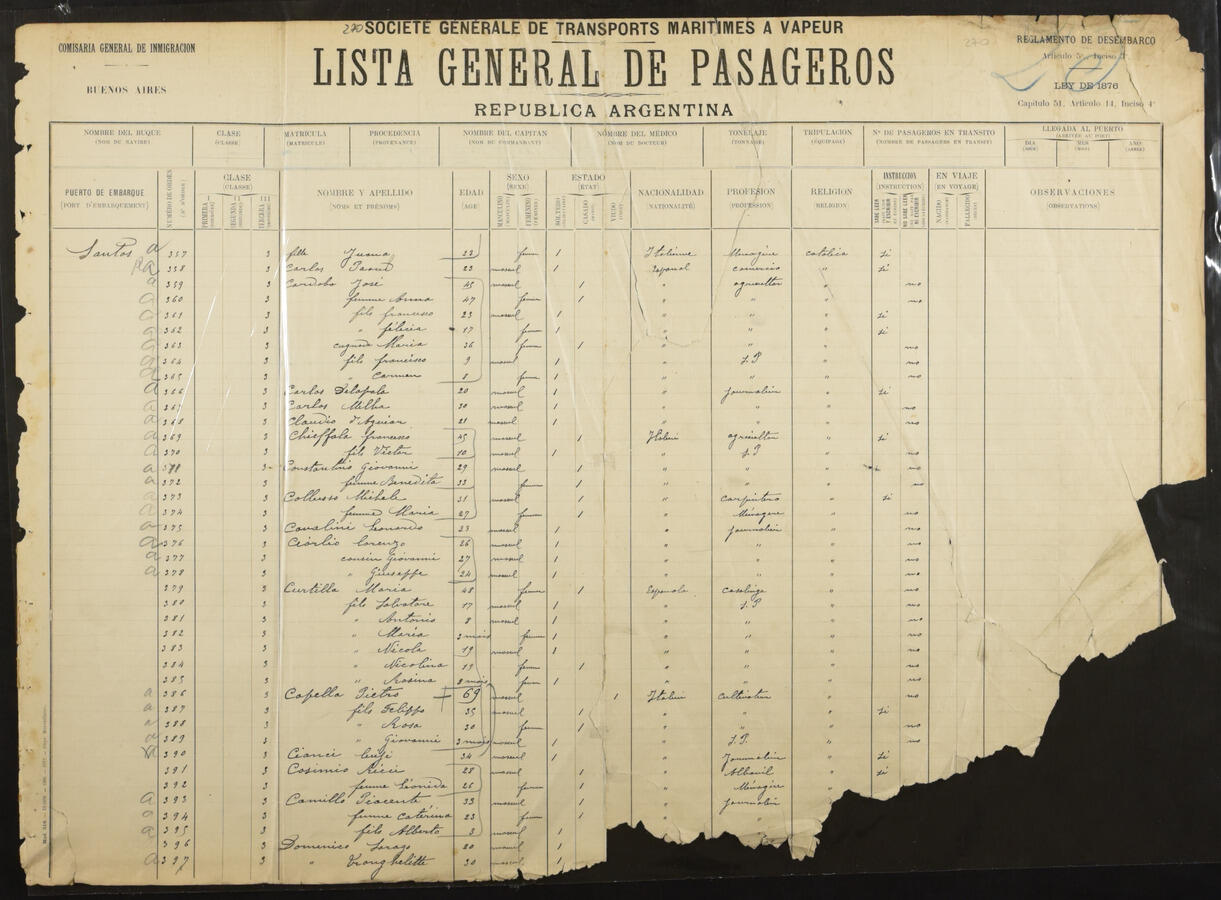 270 SOCIÉTÉ GÉNÉRALE DE TRANSPORTS MARITIMES A VAPEUR
COMISARIA GENERAL DE INMIGRACION
BUENOS AIRES
LISTA GENERAL DE PASAGEROS
REPUBLICA ARGENTINA
270
REGLAMENTO DE DESEMBARCO
Artículo 5º, Inciso 3º
LEY DE 1876
Capítulo 51, Artículo 14, Inciso 4º
NOMBRE DEL BUQUE CLASE MATRICULA PROCEDENCIA NOMBRE DEL CAPITAN NOMBRE DEL MÉDICO TONELAJE TRIPULACION Nº DE PASAGEROS EN TRANSITO LLEGADA AL PUERTO
(NOM DU NAVIRE) (CLASSE) (MATRICULE) (PROVENANCE) (NOM DU COMMANDANT) (NOM DU DOCTEUR) (TONNAGE) (ÉQUIPAGE) (NOMBRE DE PASSAGERS EN TRANSIT) (ARRIVÉE AU PORT)
DIA MES AÑO
PUERTO DE EMBARQUE NÚMERO DE ORDEN CLASE NOMBRE Y APELLIDO EDAD SEXO ESTADO NACIONALIDAD PROFESION RELIGION INSTRUCCION EN VIAJE OBSERVACIONES
(PORT D'EMBARQUEMENT) (CLASSE) (NOMS ET PRÉNOMS) (AGE) (SEXE) (ÉTAT) (NATIONALITÉ) (PROFESSION) (RELIGION) (INSTRUCTION) (EN VOYAGE) (OBSERVATIONS)
PRIMERA SEGUNDA TERCERA MASCULINO FEMENINO SOLTERO CASADO VIUDO NACIDO FALLECIDO
Santos a 357 3 fille Juana 22 fem 1 Italienne Ménagère catolica si
a 358 3 Carlos 23 mascul 1 Espanol comercio " si
a 359 3 Cordobo José 45 mascul 1 " agriculteur " no
a 360 3 femme Anna 47 femm 1 " " " no
a 361 3 fils francesco 23 mascul 1 " " " si
a 362 3 " félicia 17 femm 1 " " " si
a 363 3 cugnada Maria 36 femm 1 " " " no
a 364 3 fils francisco 9 mascul 1 " S.P " no
a 365 3 " Carmen 8 femm 1 " " " no
a 366 3 Carlos 20 mascul 1 " journalier " si
a 367 3 Carlos Melha 30 mascul 1 " " " no
a 368 3 Claudio d'Aguiar 21 mascul 1 " " " no
a 369 3 Chieffalo francesco 45 mascul 1 Italien agriculteur " si
a 370 3 fils Victor 10 mascul 1 " S.P " no
a 371 3 Constantino Giovanni 29 mascul 1 " " " no
a 372 3 femme Benedita 33 femm 1 " " " no
a 373 3 Collusso Michele 31 mascul 1 " carpintero " si
a 374 3 femme Maria 27 femm 1 " Ménagère " no
a 375 3 Cavalini Leonardo 23 mascul 1 " journalier " no
a 376 3 Ciorlio Lorenzo 26 mascul 1 " " " no
a 377 3 cousin Giovanni 27 mascul 1 " " " no
a 378 3 " Giuseppe 24 mascul 1 " " " no
379 3 Curtilla Maria 48 femm 1 Espanola casalinga " no
380 3 fils Salvatore 17 mascul 1 " S.P " no
381 3 " Antonio 8 mascul 1 " " " no
382 3 " Maria 3 mois femm 1 " " " no
383 3 " Nicola 19 mascul 1 " " " no
384 3 " Nicolina 19 femm 1 " " " no
385 3 " Rosina 8 mois femm 1 " " " no
a 386 3 Capella Pietro 69 mascul 1 Italien cultivateur " no
a 387 3 fils Felippo 35 mascul 1 " " " si
a 388 3 " Rosa 30 femm 1 " " " no
a 389 3 " Giovanni 3 mois mascul 1 " S.P. " no
390 3 Cianci Luigi 34 mascul 1 " Journalier " si
391 3 Cosimio Ricci 28 mascul 1 " Albanil " si
392 3 femme Leonida 25 femm 1 " Ménagère
a 393 3 Camillo Piacente 33 mascul 1 " journalier
a 394 3 femme Caterina 23 femm 1 "
a 395 3 fils Alberto 3 mascul 1
396 3 Domenico Sarago 20 mascul 1
a 397 3 " 30 mascul 1